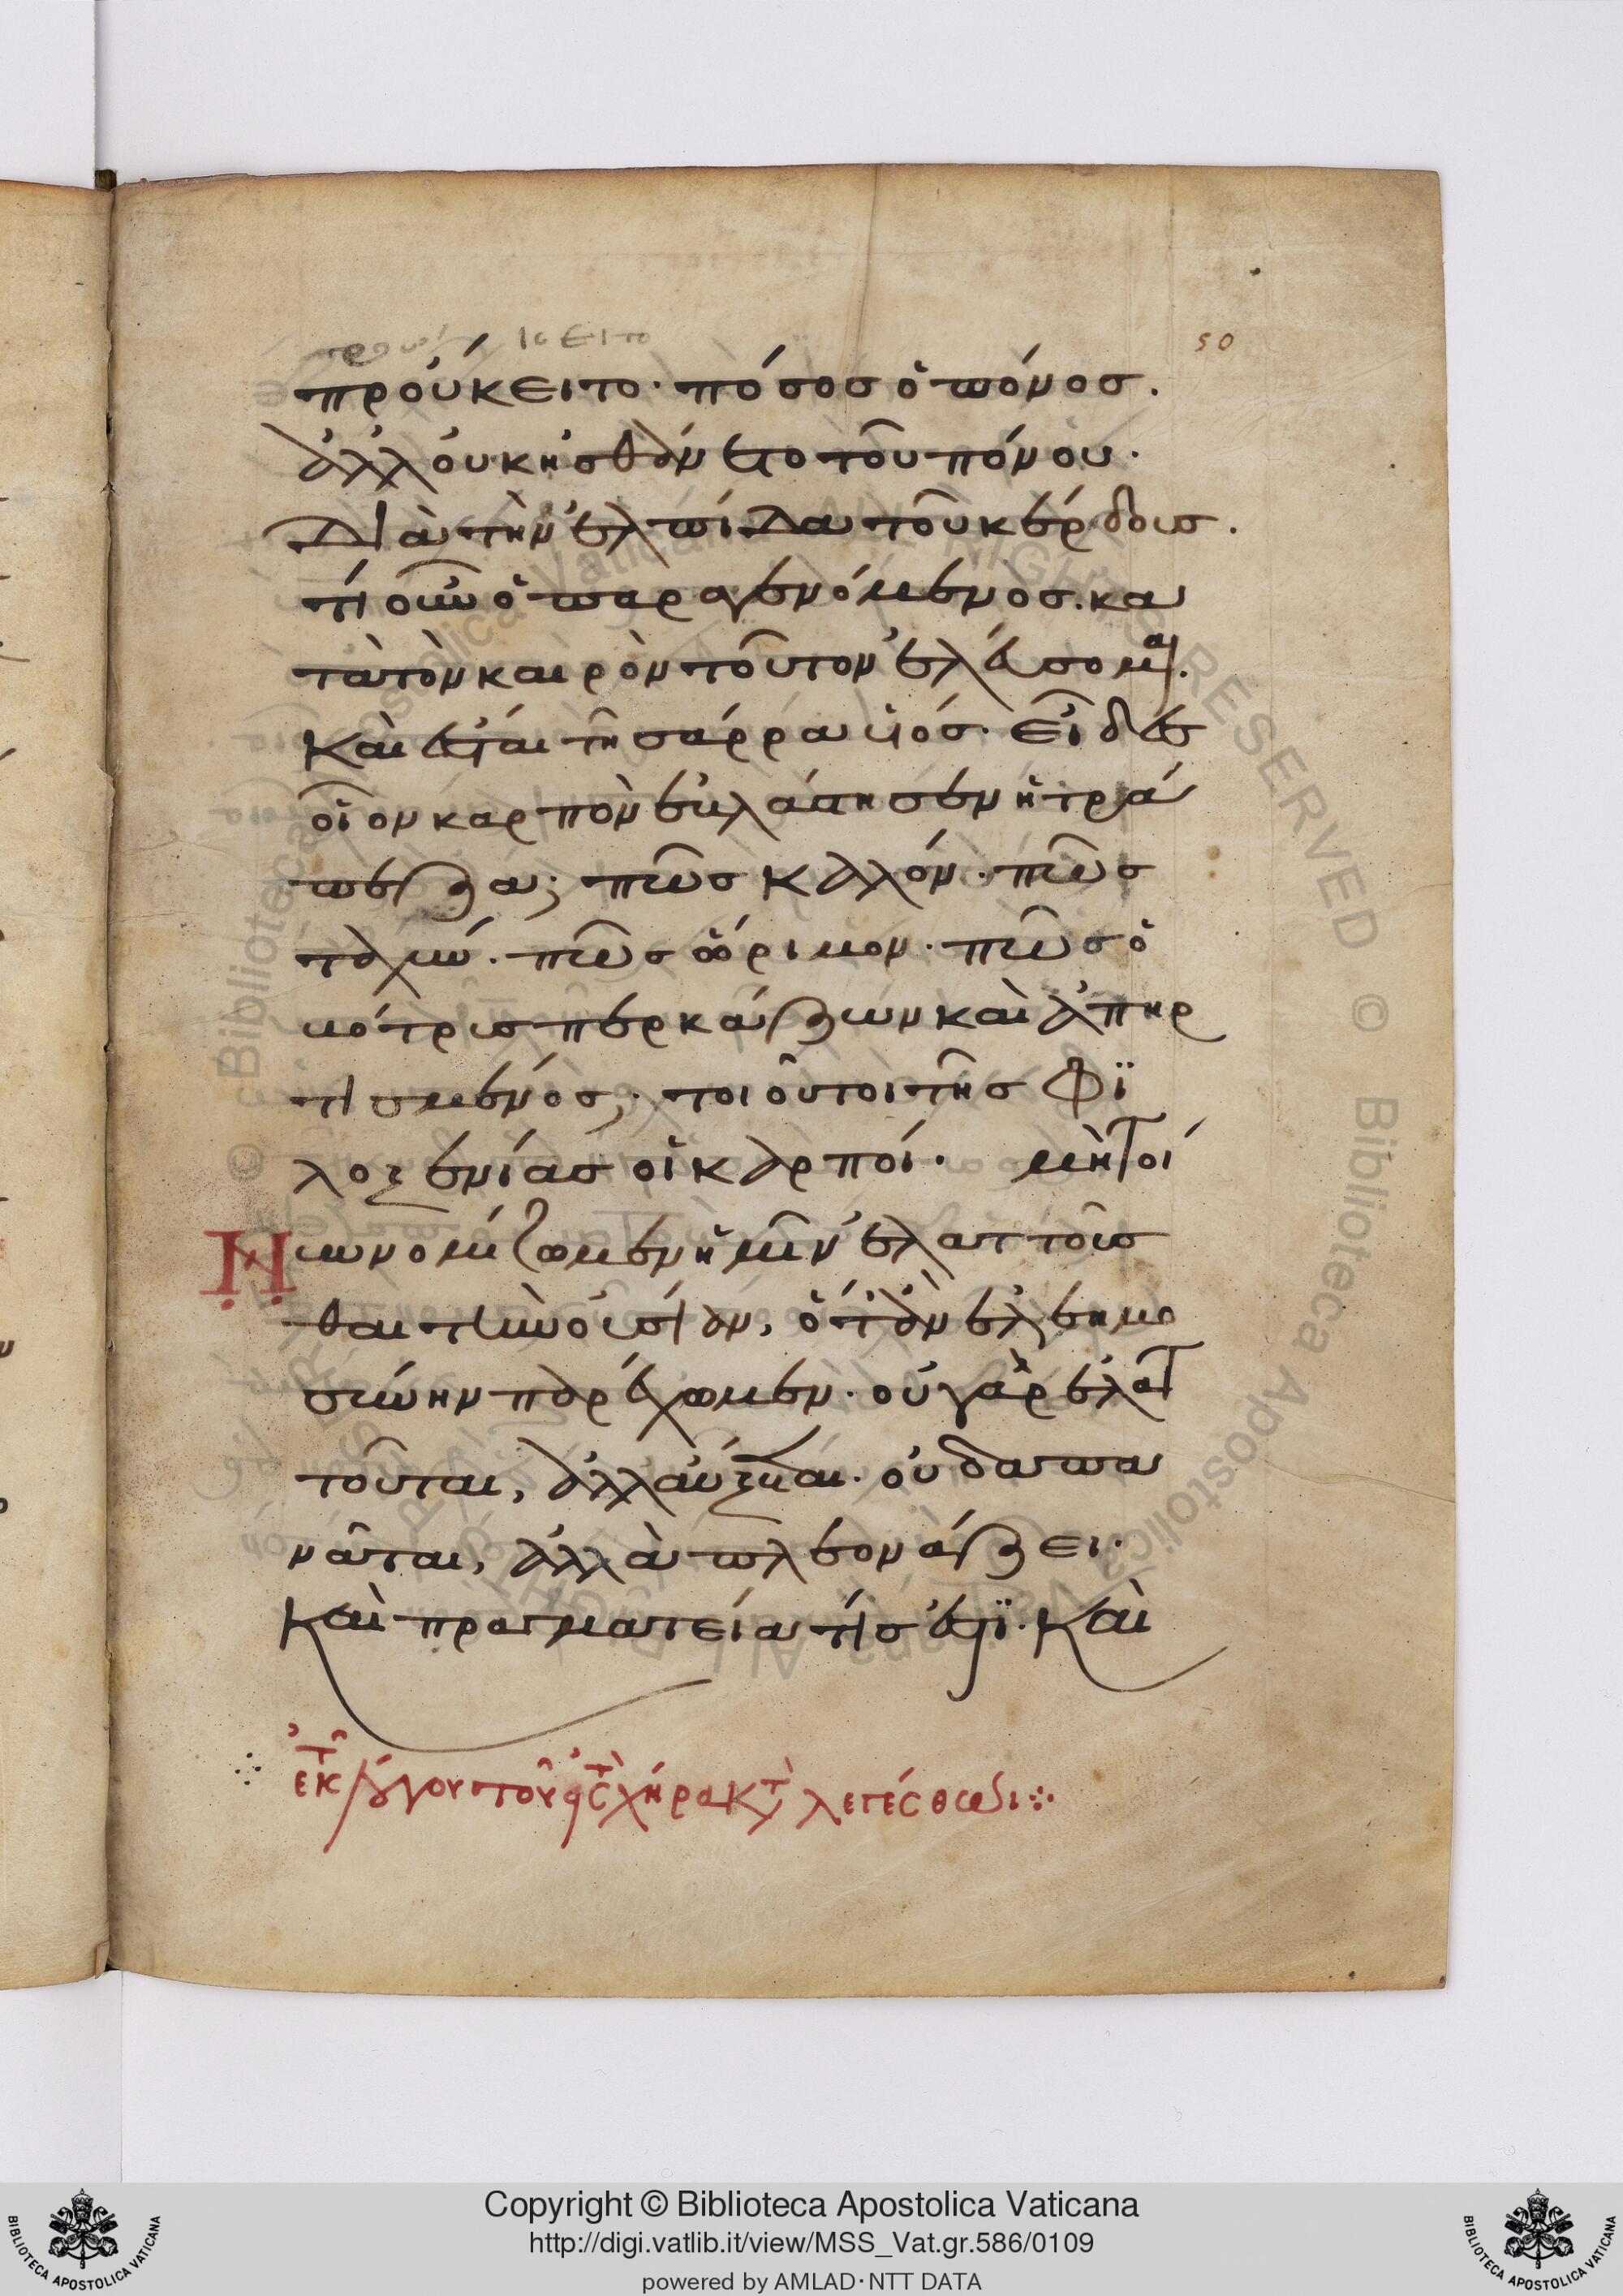 προύκειτο
50
προύκειτο· πόσος ὁ πόνος.
ἀλλ οὐκ ἠσθάνετο τοῦ πόνου·
διὰ τὴν ἐλπίδα τοῦ κέρδους.
τί οὖν ὁ παραγενόμενος. κα
τὰ τὸν καιρὸν τοῦτον ἐλεύσομαι.
καὶ ἔσται τῆ σάρρα υἱός· εἶδες
οἷον καρπὸν ἐβλάστησεν ἡ τρά
πεζα; πῶς καλόν· πῶς
ταχύ. πῶς ὥριμον· πῶς ὁ
βότρυς περκάζων καὶ ἀπηρ
τισμένος; τοιοῦτοι τῆς φϊ
λοξενίας οἱ καρποί· μὴ τοί
νυν ονομίζωμεν ἡμῖν ἐλαττοῦσ
θαι τὴν οὐσίαν, ὅτ' ἂν ἐλεημο
σύνην παρέχωμεν· οὐ γὰρ ἐλατ
τοῦται, ἀλλ αὔξεται· οὐ δαπα
νᾶται, ἀλλὰ πλεονάζει·
καὶ πραγματεία τίς ἐστϊ· καὶ
λεγέσθω δι
Copyright © Biblioteca Apostolica Vaticana
http://digi.vatlib.it/view/MSS_Vat.gr.586/0109
powered by AMLAD·NTT DATA
BIBLIOTECA APOSTOLICA VATICANA
BIBLIOTECA APOSTOLICA VATICANA